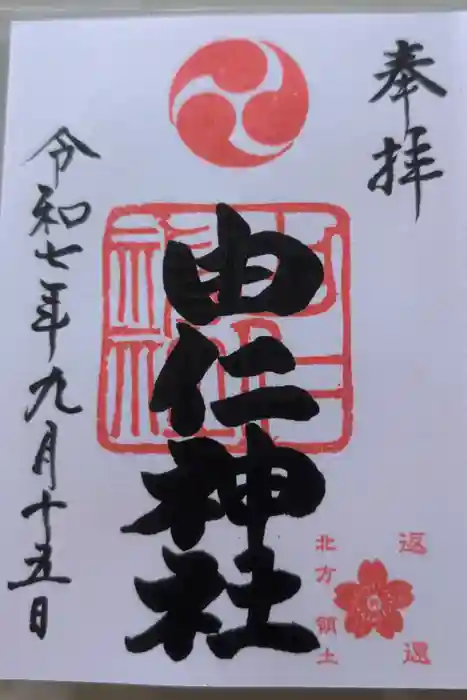 奉拝
由仁神社
由仁神社
北方領土
返還
令和七年九月十五日